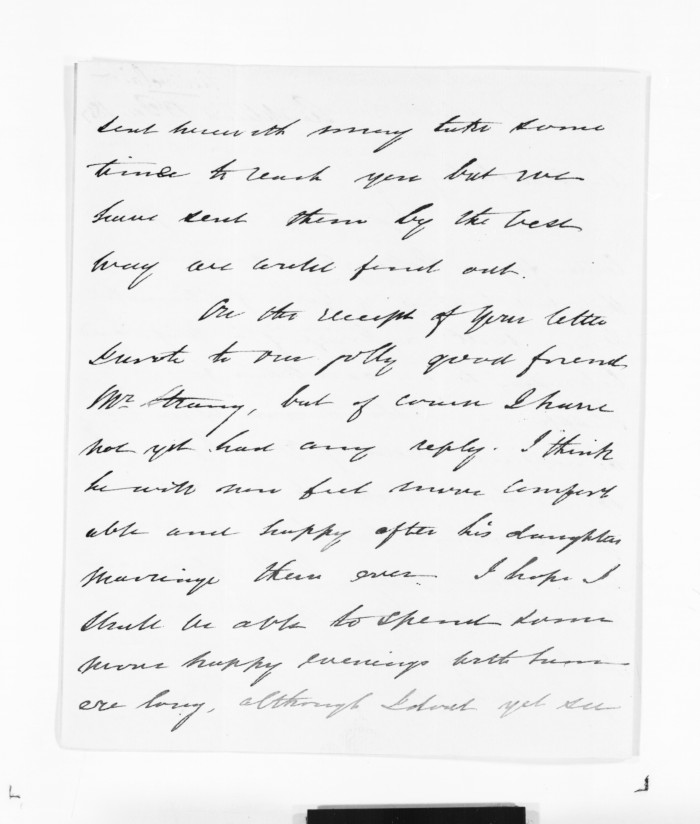 sent herewith may take some
time to reach you but we
have sent them by the best
way we could find out.
On the receipt of your letter
I wrote to our jolly good friend
Mr. Strang, but of course I have
not yet had any reply. I think
he will now feel more comfort
able and happy after his daughters
marriage then ever. I hope I
shall be able to spend some
more happy evenings with him
ere long, although I dont yet see